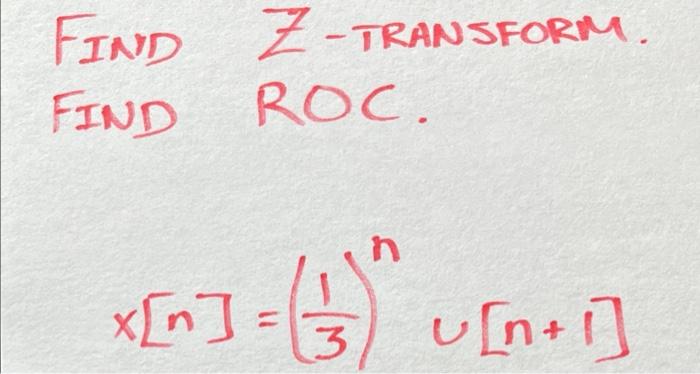 FIND Z-TRANSFORM.
FIND ROC.
x[n] = (1/3)^n u[n+1]